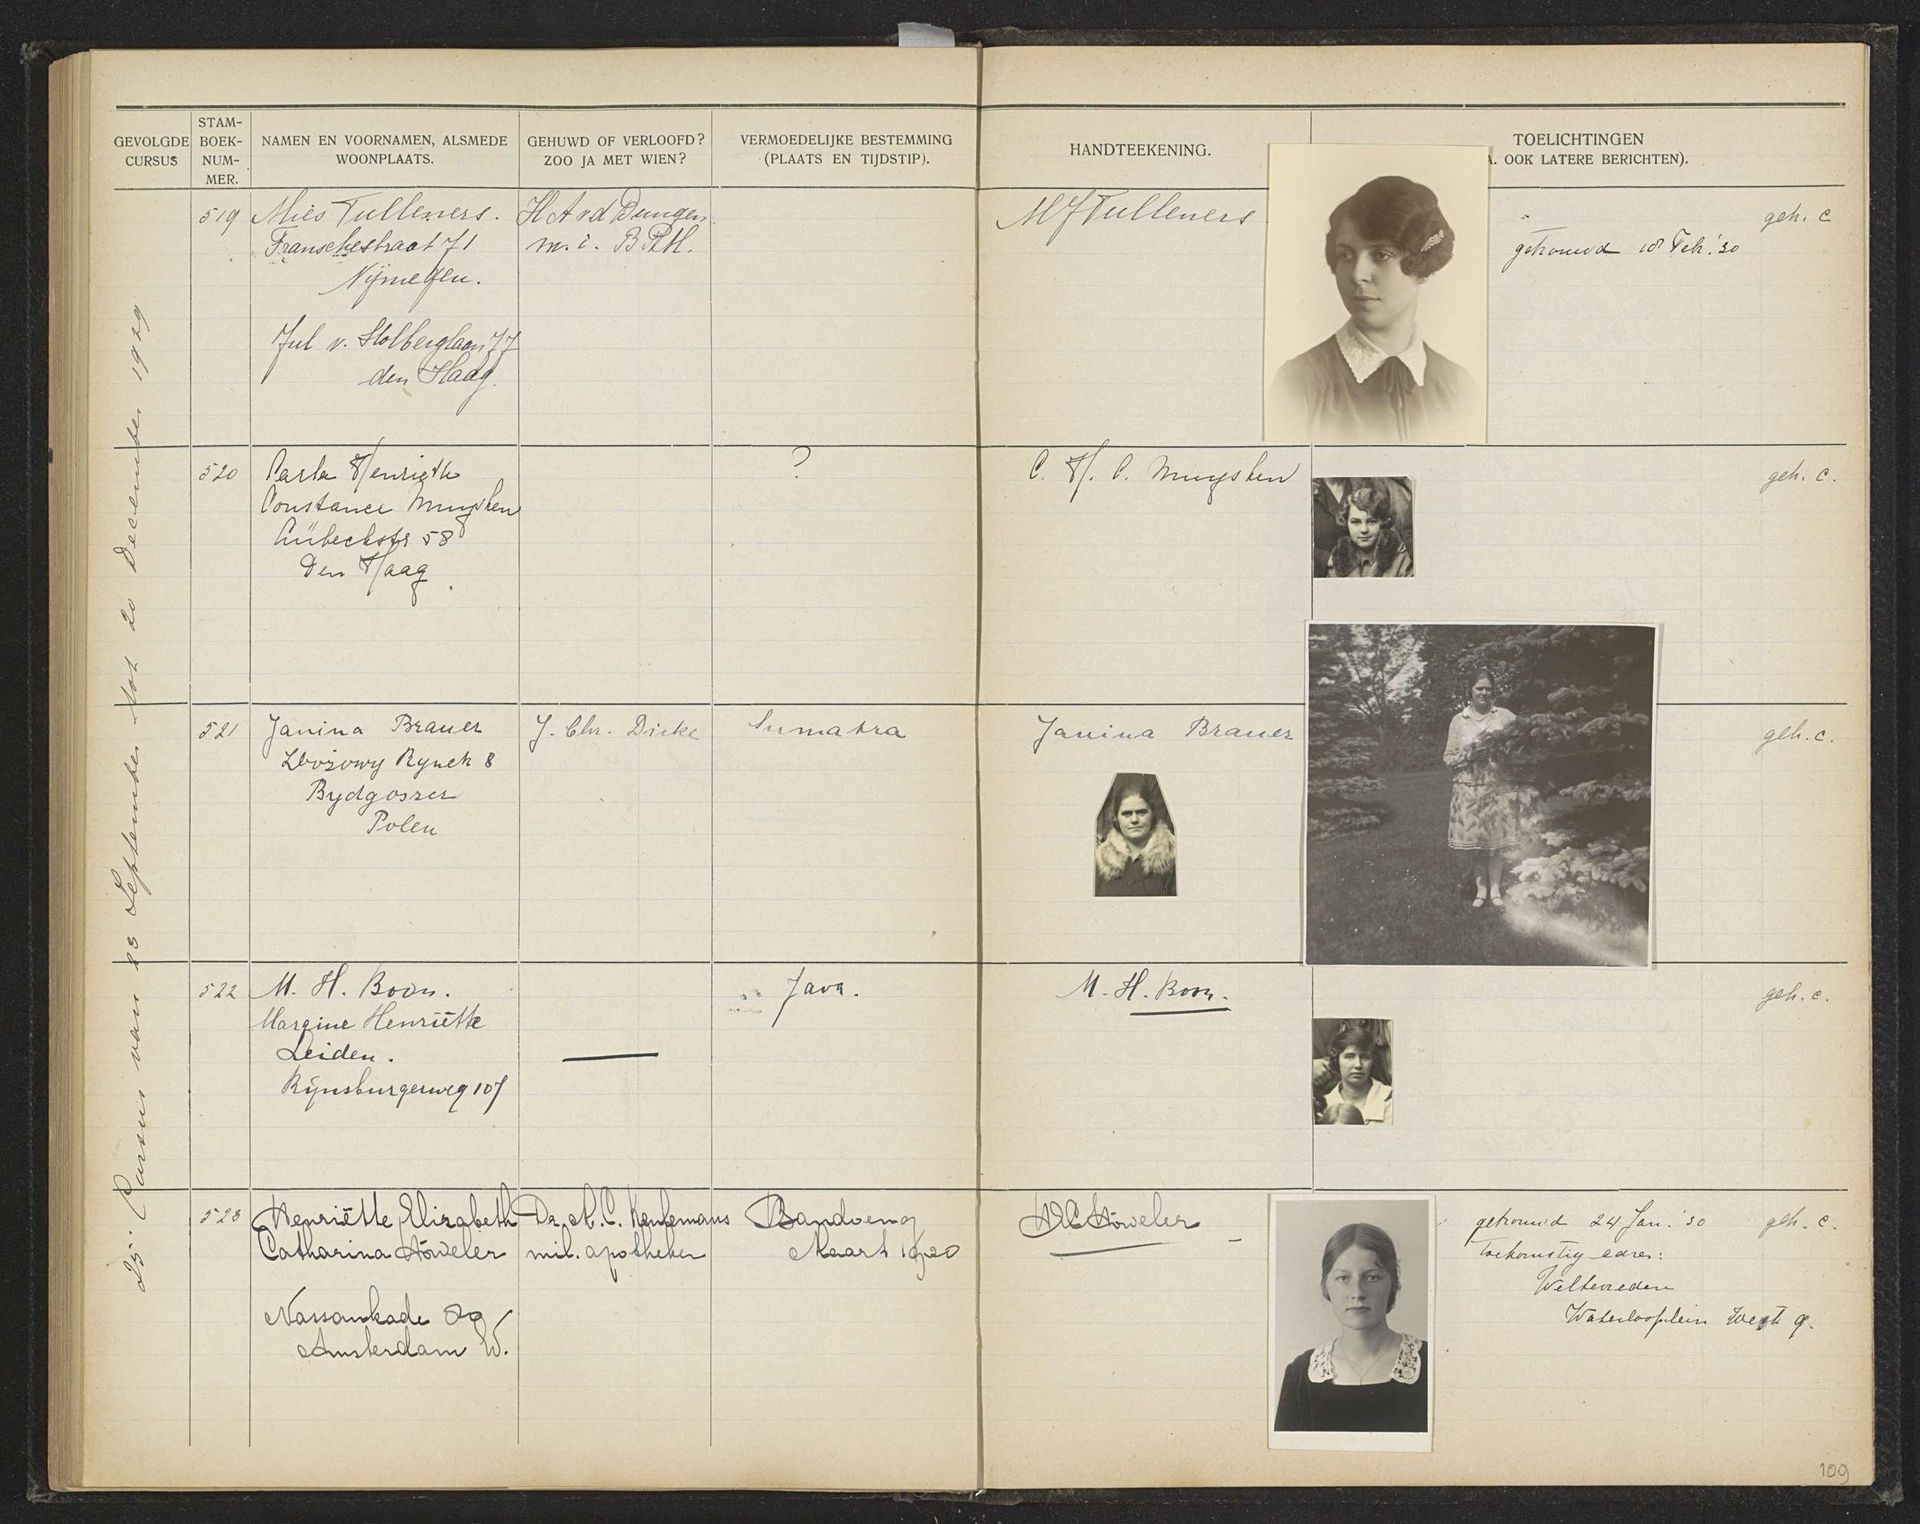 GEVOLGDE CURSUS
STAM-BOEK-NUM-MER.
NAMEN EN VOORNAMEN, ALSMEDE WOONPLAATS.
GEHUWD OF VERLOOFD? ZOO JA MET WIEN?
VERMOEDELIJKE BESTEMMING (PLAATS EN TIJDSTIP).
HANDTEEKENING.
TOELICHTINGEN
A. OOK LATERE BERICHTEN).
Cursus van 23 September tot 20 December 1929
519
Mies Tulleners.
Franschestraat 71
Nijmegen.
Jul v. Stolberglaan 77
den Haag.
H A v d Dungen
m.i. B.P.M.
M J Tulleners
getrouwd 18 Feb. '30
geh. c
520
Carla Henriette
Constance Muysken
Lübeckstr 58
Den Haag.
?
C. H. C. Muysken
geh. c.
521
Janina Brauer
Zbożowy Rynek 8
Bydgoszcz
Polen
J. Chr. Dicke
Sumatra
Janina Brauer
geh. c.
522
M. H. Boon.
Margine Henriëtte
Leiden.
Rijnsburgerweg 107
Java.
M. H. Boon.
geh. c.
523
Henriëtte Elizabeth
Catharina Höweler
Nassaukade
Amsterdam W.
Dr. A. C. Keulemans
mil. apotheker
Bandoeng
Maart 1930
HEC Höweler
getrouwd 24 Jan. '30
geh. c.
Toekomstig adres:
Weltevreden
Waterlooplein West 9.
109